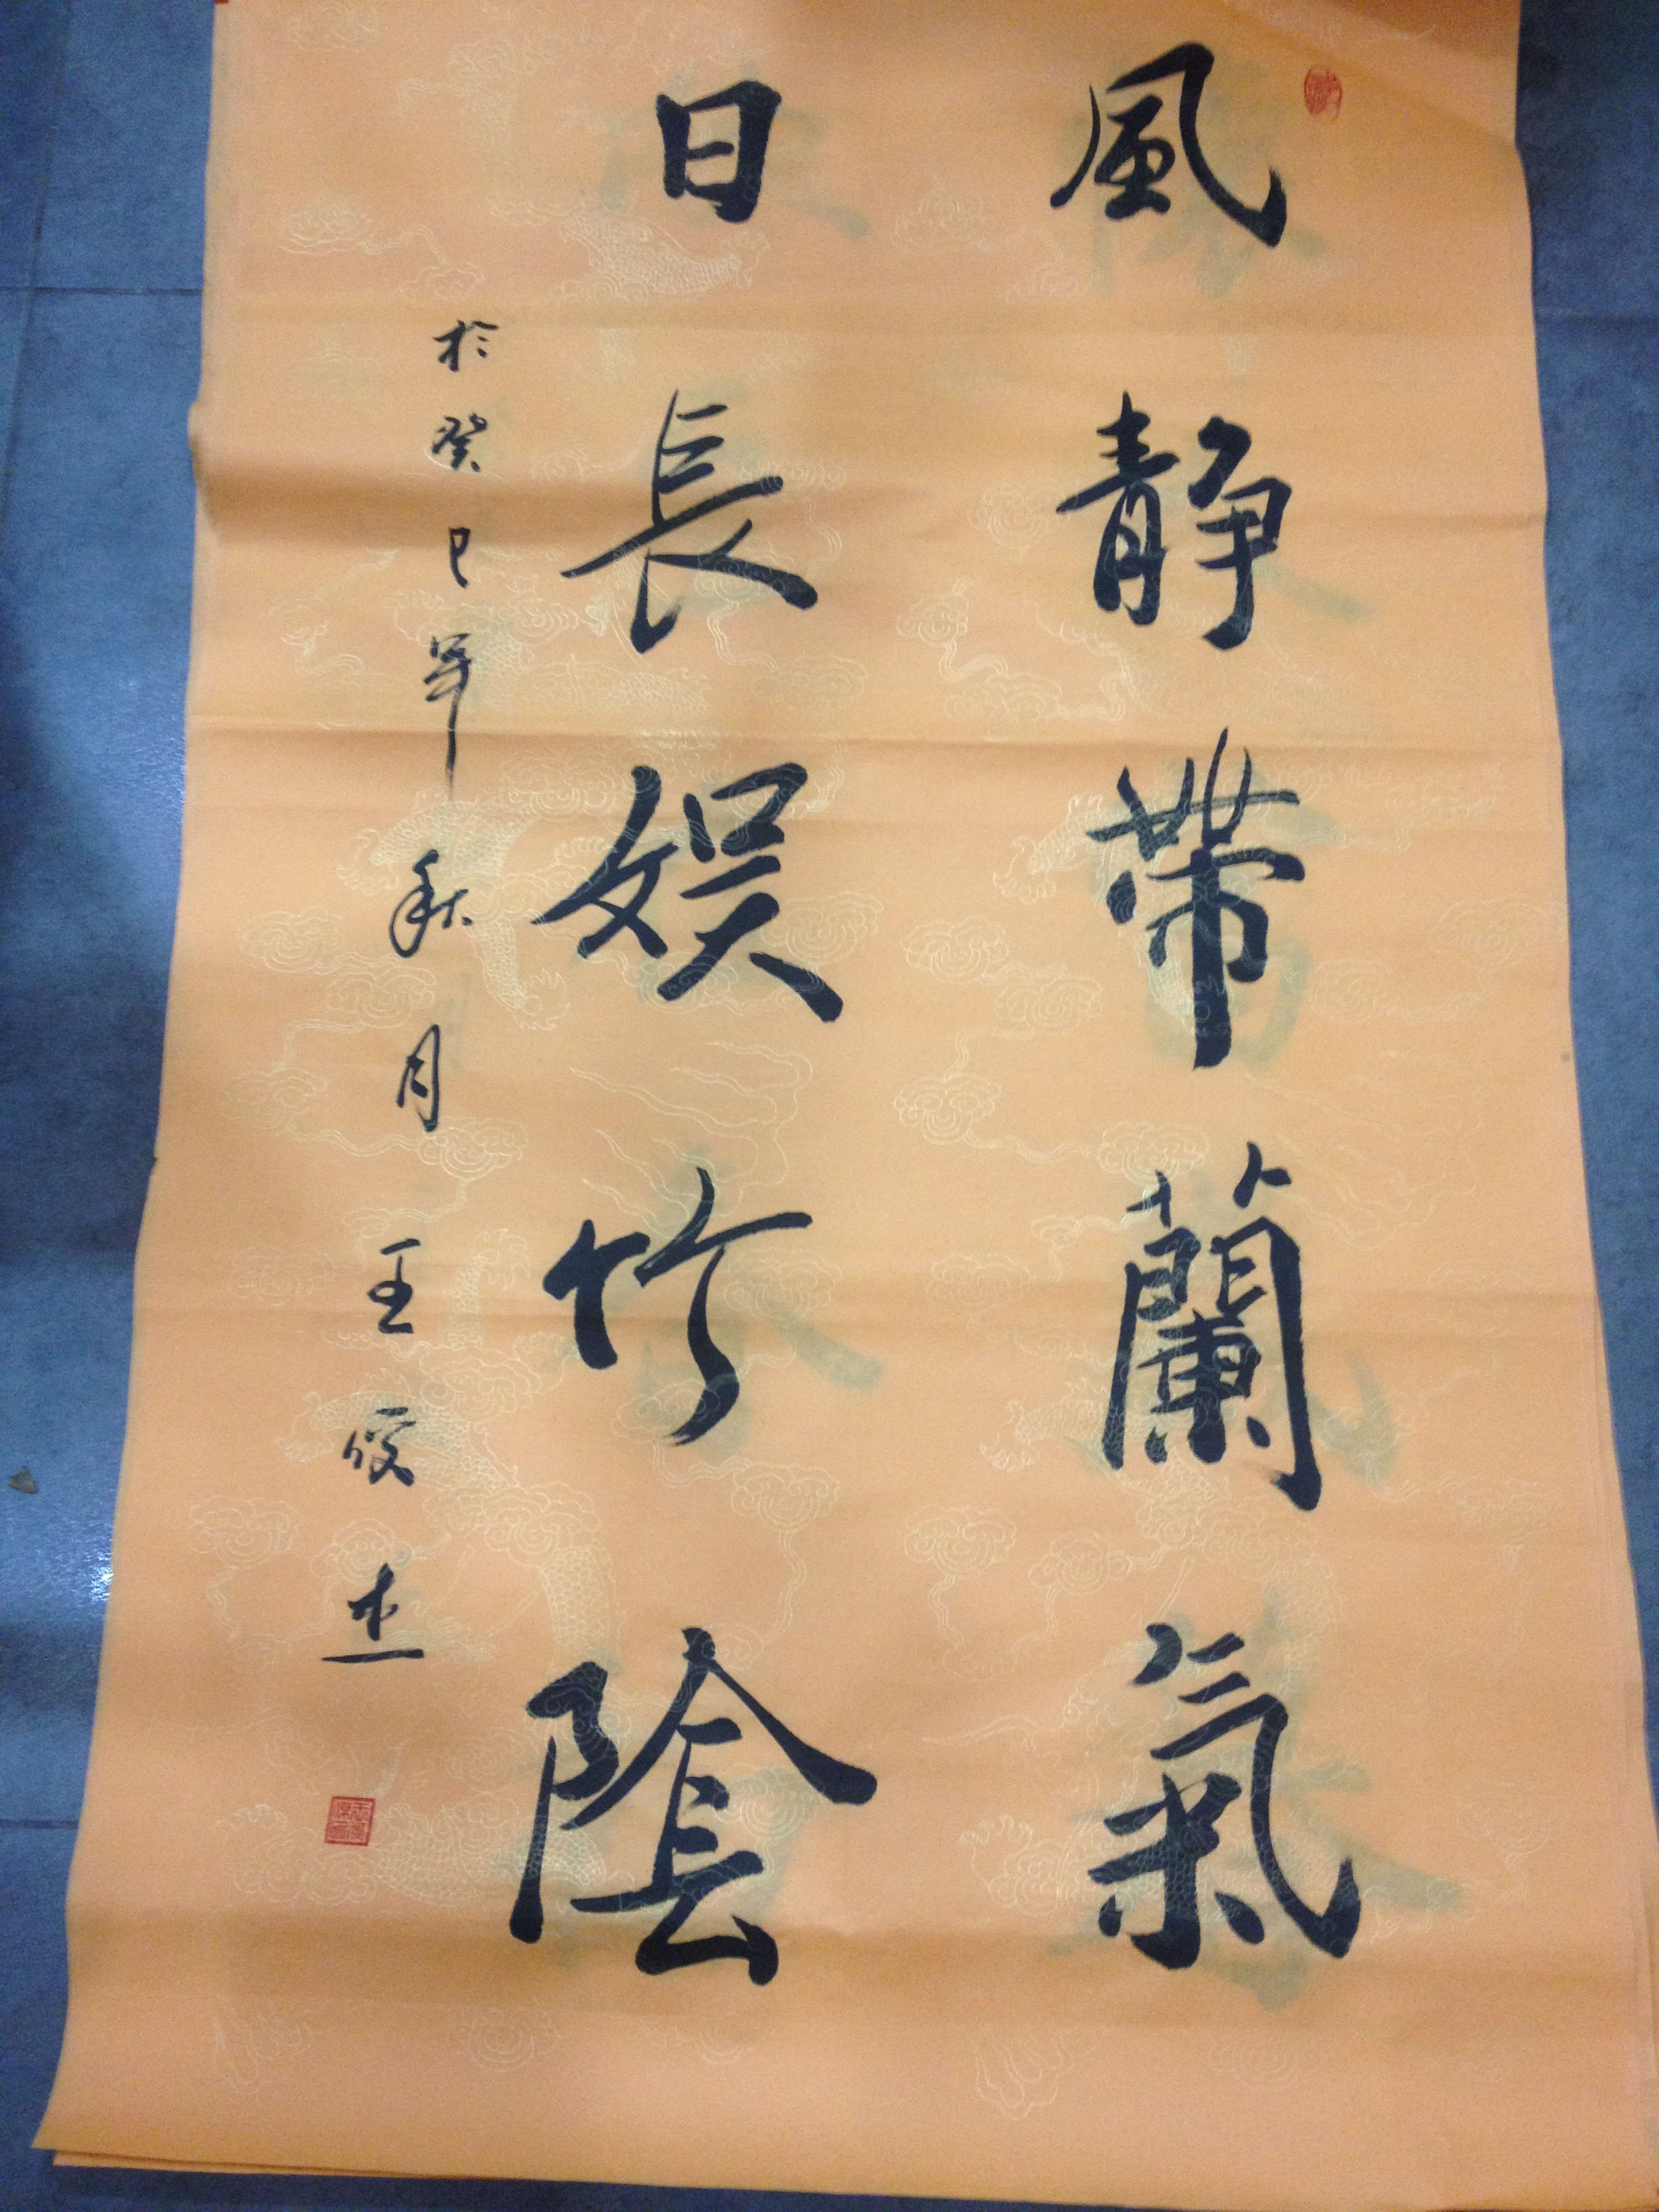 風靜帶蘭氣
日長娱竹陰
於癸巳年秋月王